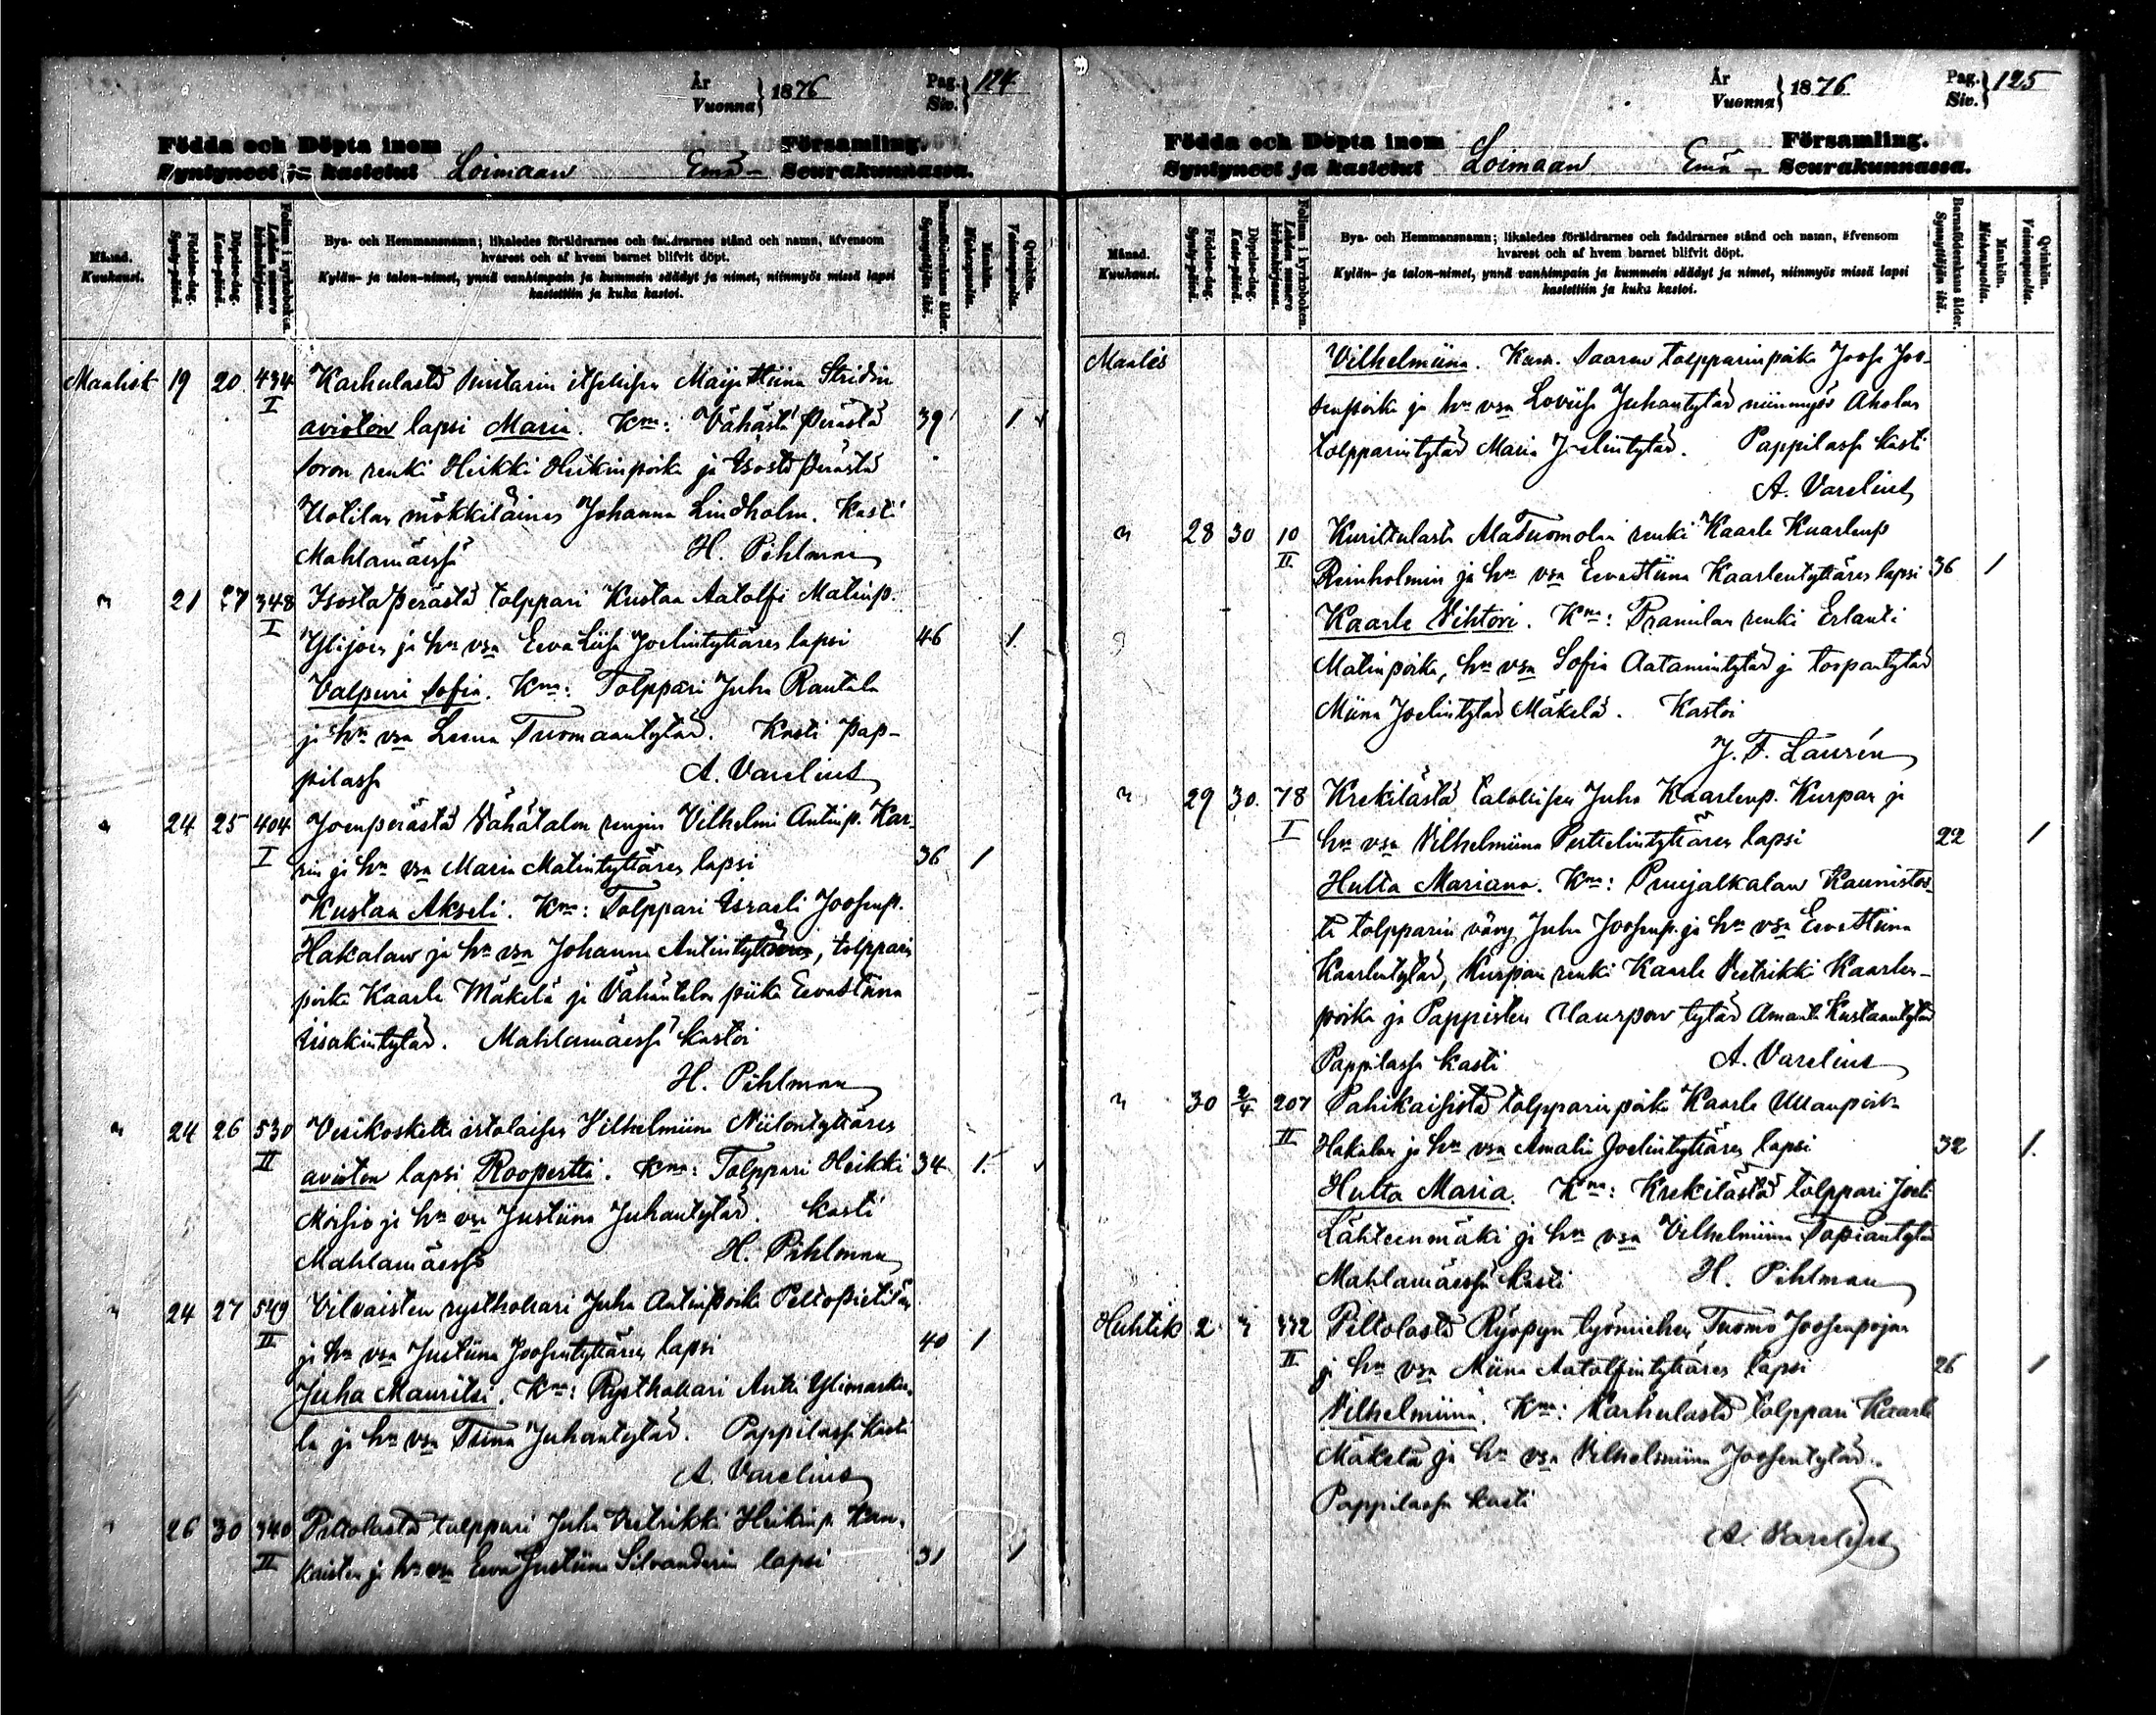 År
Vuonna } 1876
Pag.
Siv. } 124
Födda och Döpta inom Församling.
Syntyneet ja kastetut Loimaan Emä- Seurakunnassa.
Månad.
Kuukausi.
Födelse-dag.
Synty-päivä.
Döpelse-dag.
Kaste-päivä.
Folium i kyrkoboken.
Lehden numero kirkonkirjassa.
Bya- och Hemmansnamn; likaledes föräldrarnes och faddrarnes stånd och namn, äfvensom
hvarest och af hvem barnet blifvit döpt.
Kylän- ja talon-nimet, ynnä vanhimpain ja kummein säädyt ja nimet, niinmyös missä lapsi
kastettiin ja kuka kastoi.
Barnaföderskans ålder.
Synnyttäjän ikä.
Mankön.
Miehenpuolia.
Qvinkön.
Vaimonpuolia.
Maalisk 19 20 434 Karhulasta itsellisen Maija Stiina Stridin
I avioton lapsi Maria. Kmt: Vähästä Perästä 39 1
renki Heikki Heikinpoika ja Isosta Perästä
Uotilan mökkiläinen Johanna Lindholm. Kasti
Mahlamäessä H. Pihlman
" 21 27 348 Isosta Perästä tolppari Kustaa Aatolfi Matinp.
I Ylijoen ja hn vsn Eeva Liisa Joelintyttären lapsi 46 1
Valpuri Sofia. Kmt: Tolppari Juha Rautala
ja hn vsn Leena Tuomaantytär. Kasti Pap-
pilassa A. Varelius
" 24 25 404 Joenperästä Vähätalon rengin Vilhelmi Antinp. Kar-
I rin ja hn vsn Maria Matintyttären lapsi 36 1
Kustaa Akseli. Kmt: Tolppari Israeli Joosenp.
Hakalan ja hn vsn Johanna Antintytär, tolpparin
poika Kaarle Mäkelä ja Vähäntalon piika Eevastiina
Iisakintytär. Mahlamäessä kastoi
H. Pihlman
" 24 26 530 Vesikoskelta Vilhelmiina Niilontyttären
II avioton lapsi Roopertti. Kmt: Tolppari Heikki 34 1
Moisio ja hn vsn Justiina Juhantytär. Kasti
Mahlamäessä H. Pihlman
" 24 27 549 Vilvaisten rysthollari Juha Antinpoika Peltopietilän
II ja hn vsn Justiina Joosentyttären lapsi 40 1
Juha Mauritsi. Kmt: Rysthollari Antti Ylimarku-
la ja hn vsn Tiina Juhantytär. Pappilassa kasti
A. Varelius
" 26 30 340 Piltolasta tolppari Juha Vietrikki Heikinp. Kan-
II kaisten ja hn vsn Eeva Justiina Silvanderin lapsi 31 1
År
Vuonna } 1876
Pag.
Siv. } 125
Födda och Döpta inom Församling.
Syntyneet ja kastetut Loimaan Emä- Seurakunnassa.
Månad.
Kuukausi.
Födelse-dag.
Synty-päivä.
Döpelse-dag.
Kaste-päivä.
Folium i kyrkoboken.
Lehden numero kirkonkirjassa.
Bya- och Hemmansnamn; likaledes föräldrarnes och faddrarnes stånd och namn, äfvensom
hvarest och af hvem barnet blifvit döpt.
Kylän- ja talon-nimet, ynnä vanhimpain ja kummein säädyt ja nimet, niinmyös missä lapsi
kastettiin ja kuka kastoi.
Barnaföderskans ålder.
Synnyttäjän ikä.
Mankön.
Miehenpuolia.
Qvinkön.
Vaimonpuolia.
Maalis Vilhelmiina. Kum. Saaren tolpparinpoika Joose Joo-
senpoika ja hn vsn Loviisa Juhantytär niinmyös Aholan
tolpparintytär Maria Joelintytär. Pappilassa kasti
A. Varelius
" 28 30 10 Kurittulasta AlaTuomolan renki Kaarle Kaarlenp
II Reinholmin ja hn vsn Eevastiina Kaarlentyttären lapsi 36 1
Kaarle Vihtori. Kmt: renki Erlanti
Matinpoika, hn vsn Sofia Aatamintytär ja torpantytär
Miina Joelintytär Mäkelä. Kastoi
J. F. Laurén
" 29 30. 78 Krekilästä talollisen Juha Kaarlenp. Kurpan ja
I hn vsn Vilhelmiina Perttelintyttären lapsi 22 1
Hulta Mariana. Kmt: Puujalkalan Kaunistos-
ta tolpparin vävy Juha Joosenp. ja hn vsn Eevastiina
Kaarlentytär, Kurpan renki Kaarle Vietrikki Kaarlen-
poika ja Pappisten tytär Amanta Kustaantytär
Pappilassa kasti A. Varelius
" 30 2/4 207 Pahikaisista tolpparinpoika Kaarle Ullanpoika
II Hakalan ja hn vsn Amalia Joelintyttären lapsi 32 1.
Hulta Maria. Kmt: Krekilästä tolppari Joeli
Lähteenmäki ja hn vsn Vilhelmiina Tapiantytär
Mahlamäessä kasti H. Pihlman
Huhtik 2 332 Piltolasta Ryöpyn työmiehen Tuomo Joosenpojan
II ja hn vsn Miina Aatolfintyttären lapsi 26 1
Vilhelmiina. Kmt: Karhulasta tolppari Kaarle
Mäkelä ja hn vsn Vilhelmiina Joosentytär.
Pappilassa kasti
A. Varelius